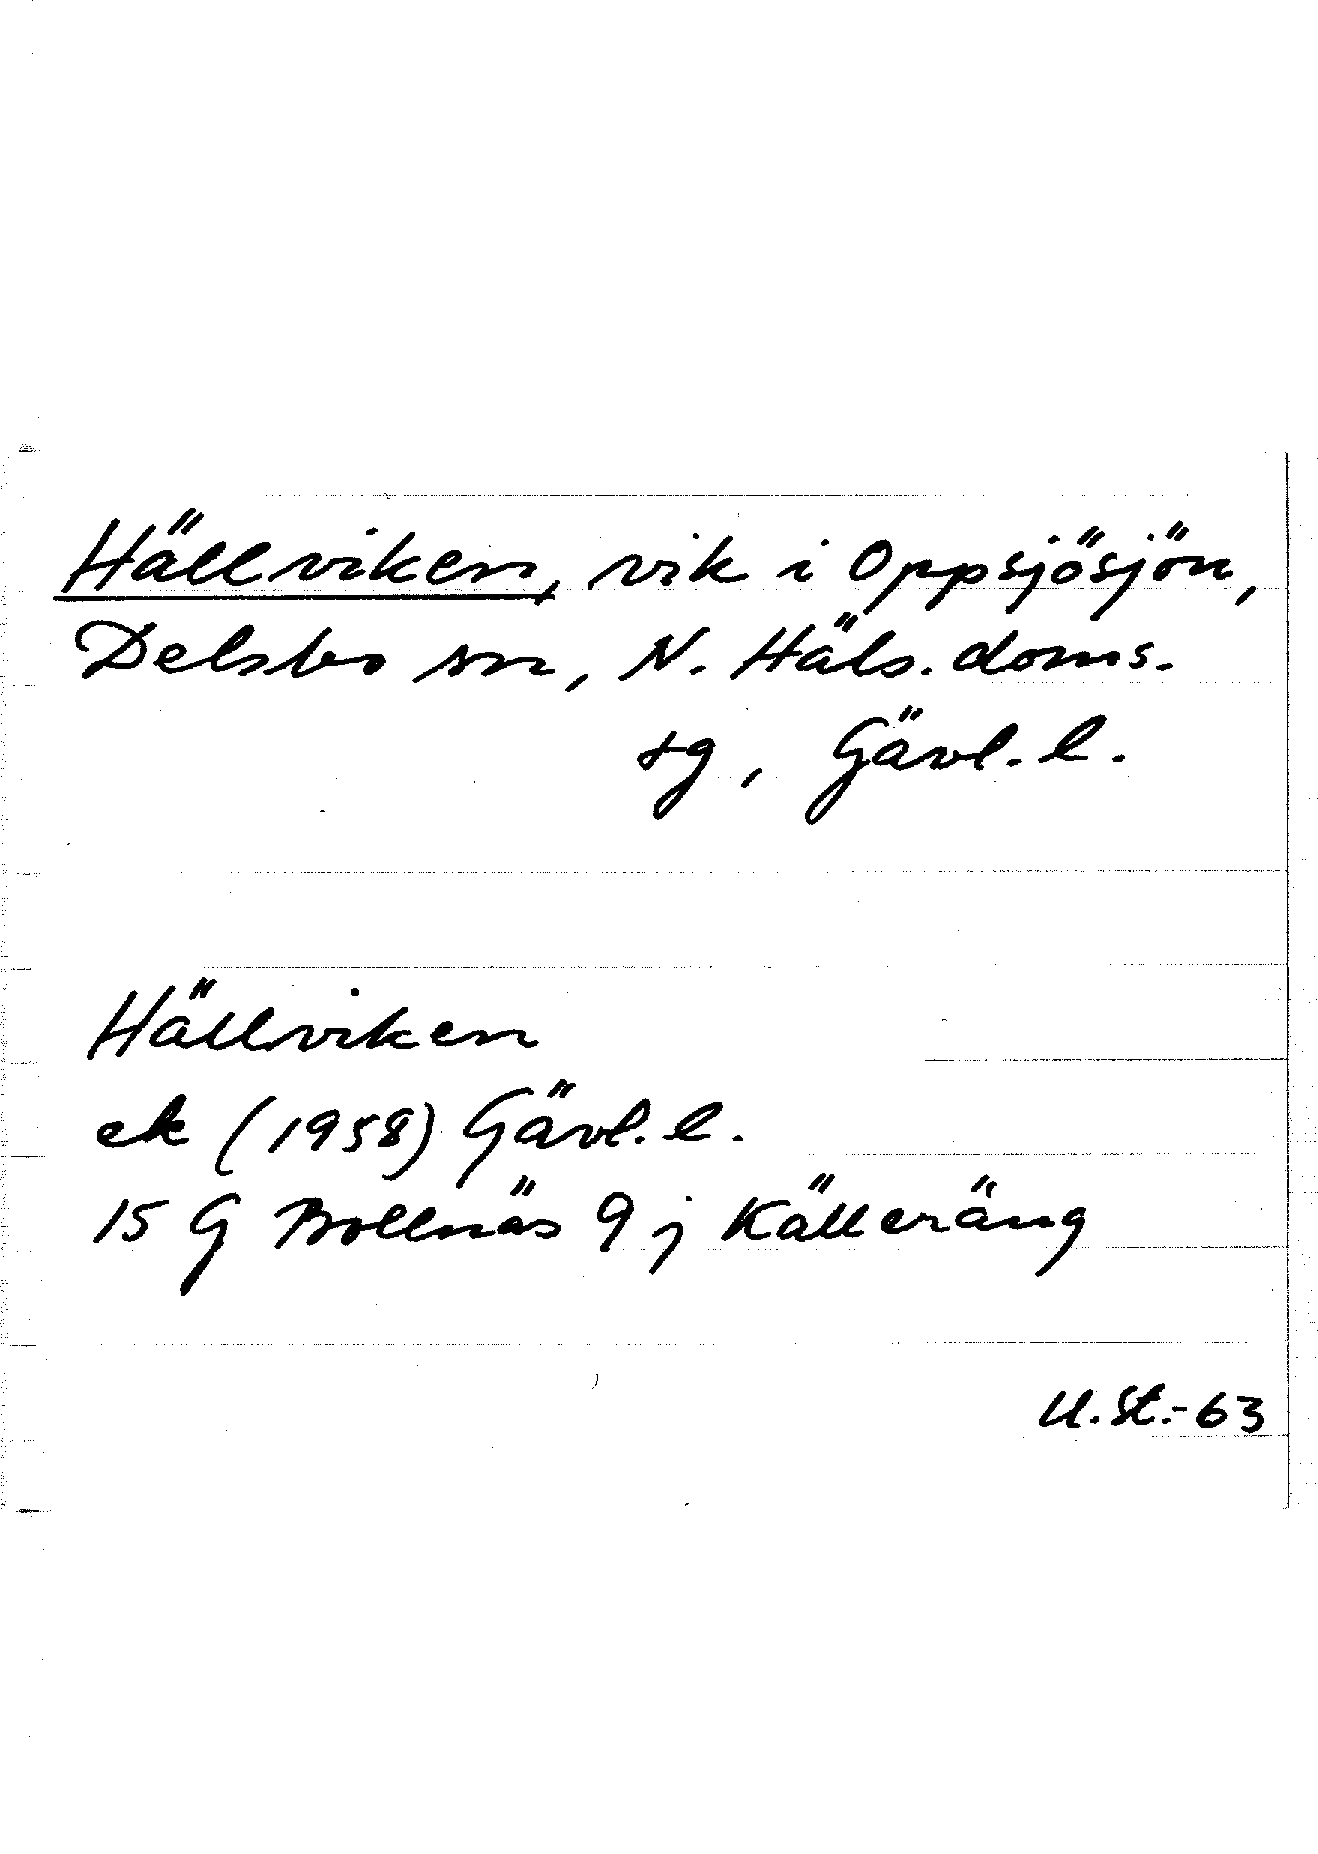 Hällviken, vik i Oppsjösjön,
Delsbo sn, N. Häls. doms.
sg, Gävl. l.
Hällviken
ek (1958) Gävl. l.
15 G Bollnäs 9 j Källeräng
U. St. - 63